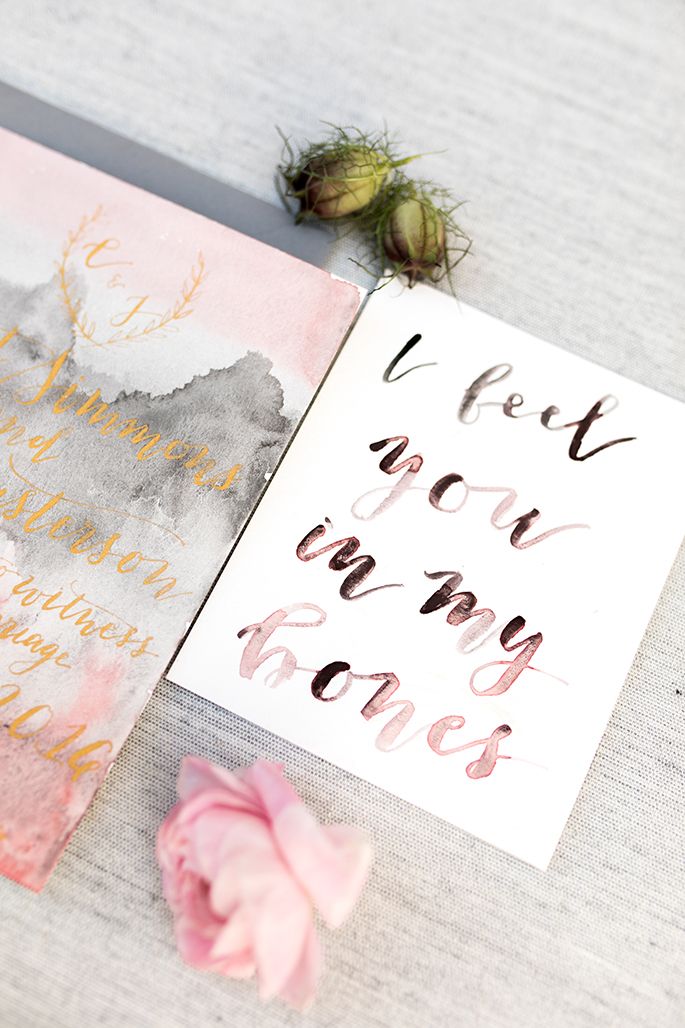 C
&
J
Simmons
and
sterson
witness
2016
I feel
you
in my
bones